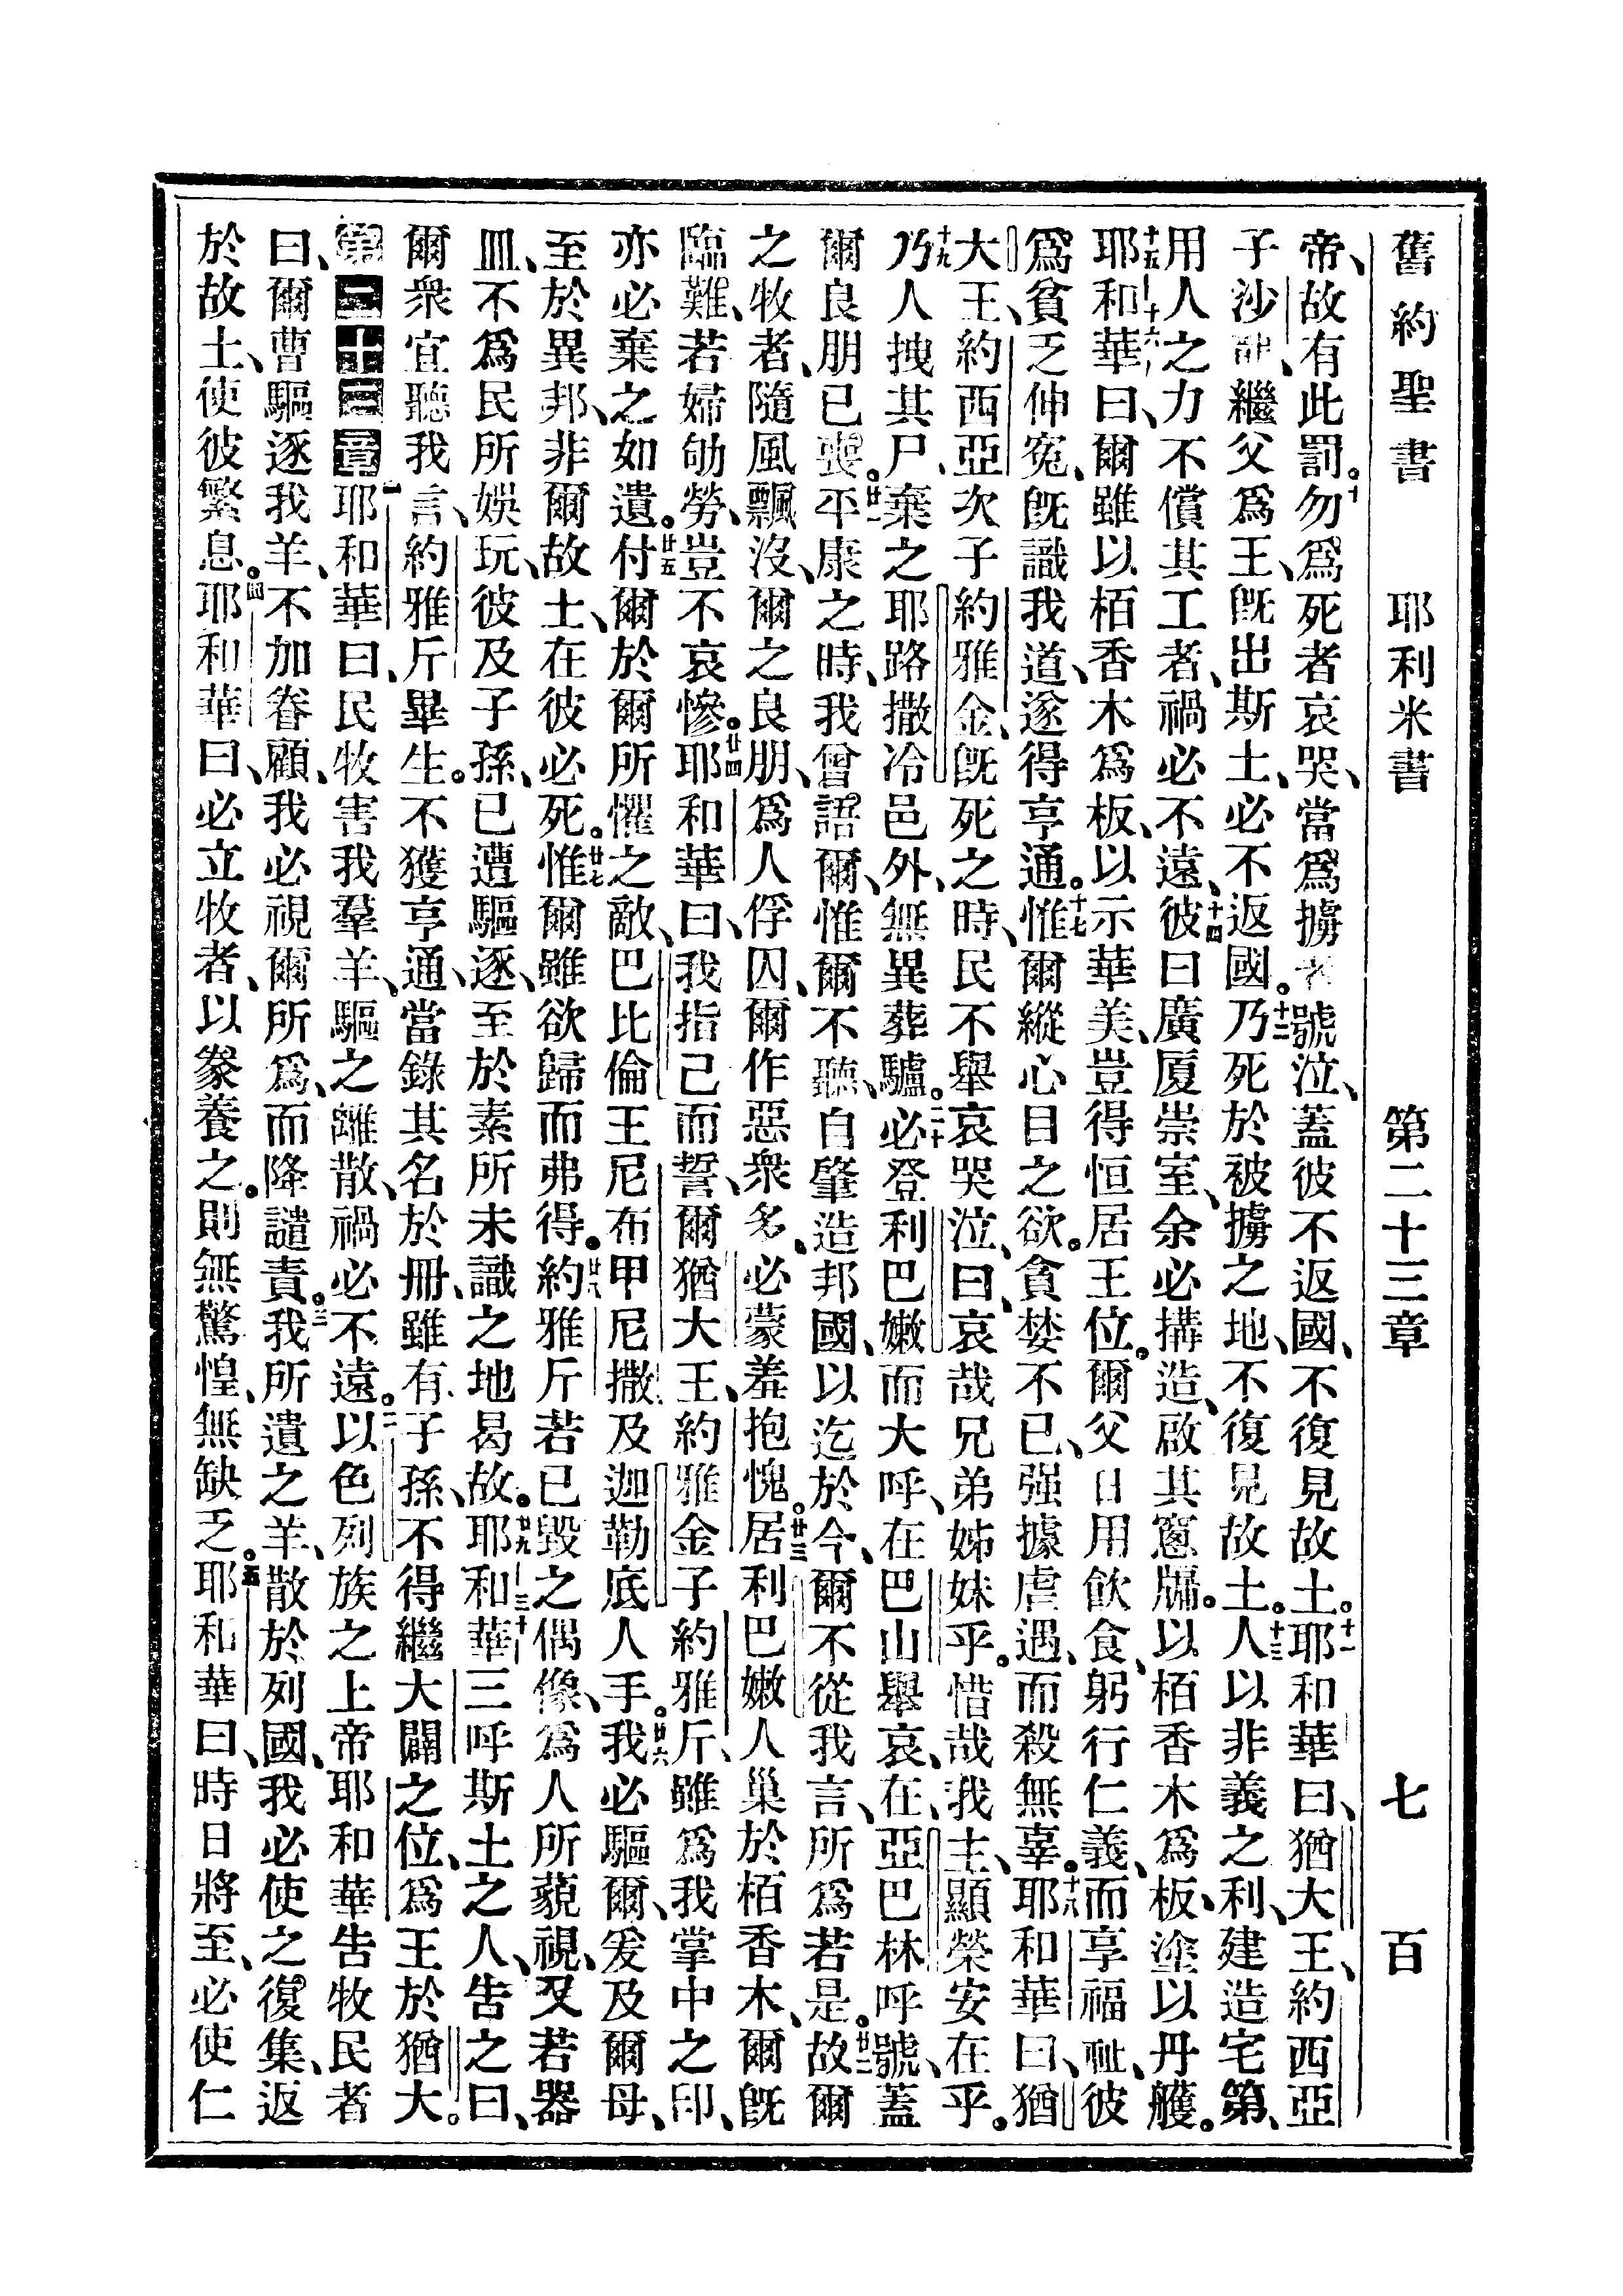 舊約聖書 耶利米書 第二十三章 七百
帝、故有此罰。十勿爲死者哀哭、當爲擄者號泣、蓋彼不返國、不復見故土。十一耶和華曰、猶大王、約西亞
子沙龍、繼父爲王、旣出斯土、必不返國。十二乃死於被擄之地、不復見故土。十三人以非義之利、建造宅第、
用人之力不償其工者、禍必不遠、十四彼曰廣厦崇室、余必搆造、啟其窻牖。以栢香木爲板、塗以丹雘。
十五耶和華曰、爾雖以栢香木爲板、以示華美、豈得恒居王位。爾父日用飲食、躬行仁義、而享福祉、十六彼
爲貧乏伸寃、旣識我道、遂得亨通。十七惟爾縱心目之欲。貪婪不已、强據虐遇、而殺無辜。十八耶和華曰、猶
大王、約西亞次子約雅金、旣死之時、民不舉哀哭泣、曰、哀哉兄弟姊妹乎。惜哉我主、顯榮安在乎。
十九乃人拽其尸、棄之耶路撒冷邑外、無異葬驢。二十必登利巴嫩而大呼、在巴山舉哀、在亞巴林呼號、蓋
爾良朋已喪。廿一平康之時、我曾語爾、惟爾不聽、自肇造邦國、以迄於今、爾不從我言、所爲若是。廿二故爾
之牧者、隨風飄沒、爾之良朋、爲人俘囚、爾作惡衆多、必蒙羞抱愧。廿三居利巴嫩人巢於栢香木、爾旣
臨難、若婦劬勞、豈不哀慘。廿四耶和華曰、我指己而誓、爾猶大王、約雅金子約雅斤、雖爲我掌中之印、
亦必棄之如遺。廿五付爾於爾所懼之敵、巴比倫王尼布甲尼撒、及迦勒底人手。廿六我必驅爾、爰及爾母、
至於異邦、非爾故土、在彼必死。廿七惟爾雖欲歸而弗得。廿八約雅斤若已毀之偶像、爲人所藐視、又若器
皿、不爲民所娛玩、彼及子孫、已遭驅逐、至於素所未識之地曷故。廿九耶和華三呼斯土之人、告之曰、
爾衆宜聽我言、三十約雅斤畢生。不獲亨通、當錄其名於冊、雖有子孫、不得繼大闢之位、爲王於猶大。
第二十三章一耶和華曰、民牧害我羣羊、驅之離散、禍必不遠。二以色列族之上帝耶和華告牧民者
曰、爾曹驅逐我羊、不加眷顧、我必視爾所爲、而降譴責。三我所遺之羊、散於列國、我必使之復集、返
於故土、使彼繁息。四耶和華曰、必立牧者、以豢養之。則無驚惶、無缺乏。五耶和華曰、時日將至、必使仁